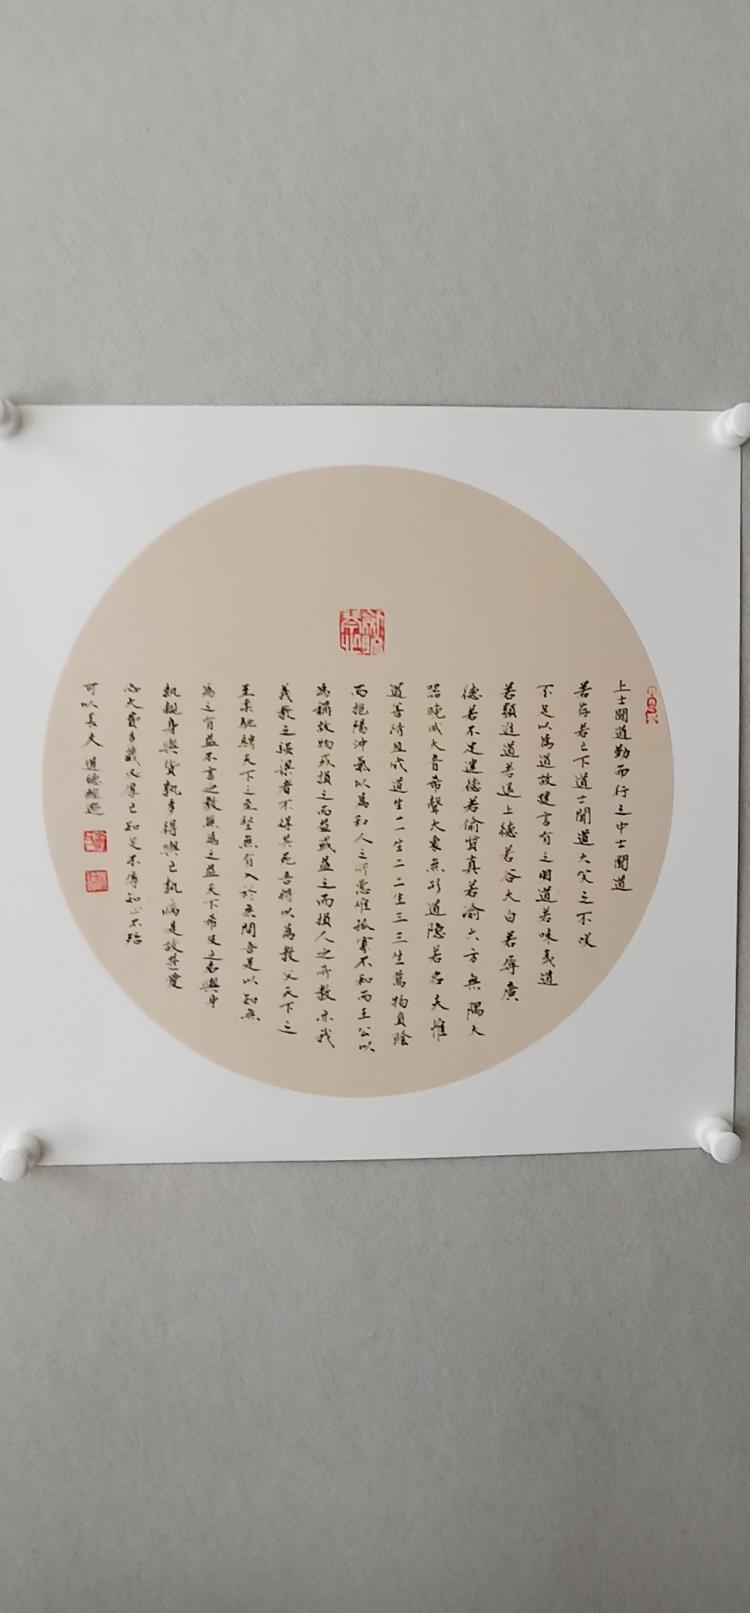 上士聞道勤而行之中士聞道
若存若亡下道士聞道大笑之不咲
不足以為道故建言有之明道若昧夷道
若類進道若退上德若谷大白若辱廣
德若不足建德若偷質真若渝大方無隅大
器晚成大音希聲大象無形道隱若名夫惟
道善待且成道生一一生二二生三三生萬物負陰
而抱陽沖氣以為和人之所惡惟孤寡不和而王公以
為稱故物或損之而益或益之而損人之所教亦我
義教之強梁者不得其死吾將以為教父天下之
至柔馳騁天下之至堅無有入於無間吾是以知無
為之有益不言之教無為之益天下希及之名與身
孰親身與貨孰多得與亡孰病是故甚愛
必大費多藏必厚亡知足不辱知止不殆
可以長久 道德經